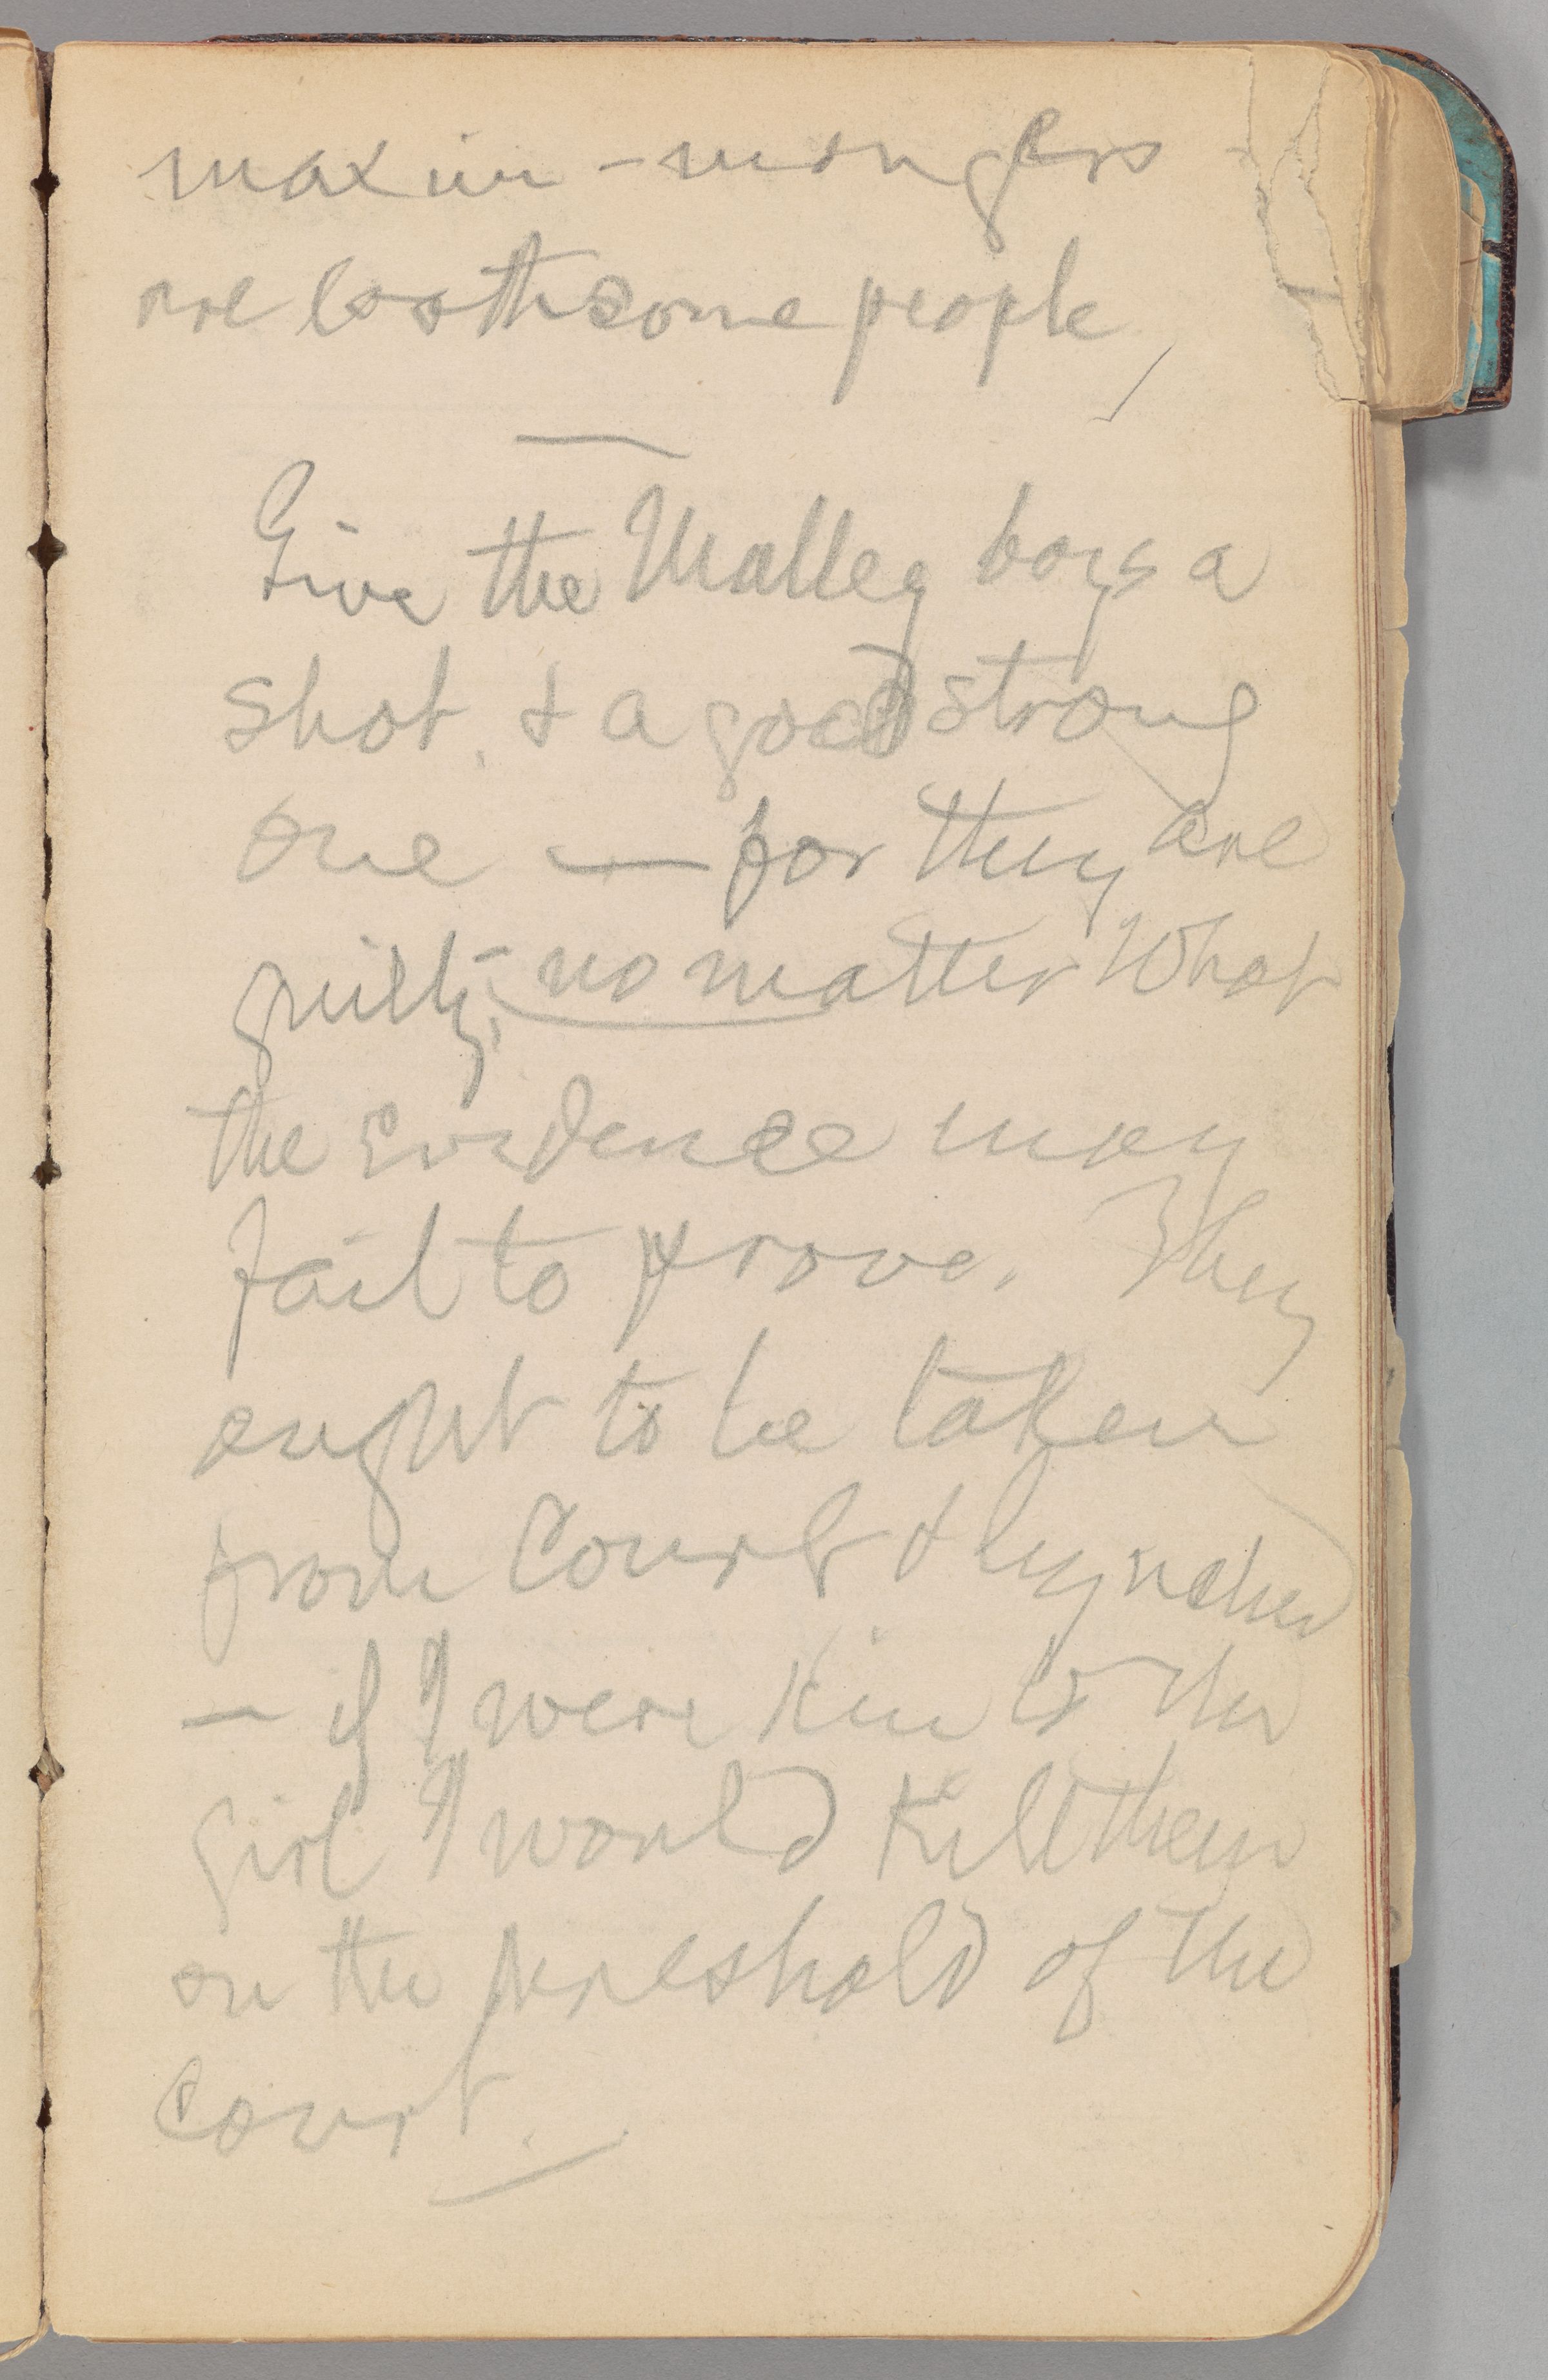 maxim-mongers
are loathsome people
Give the Malley boys a
shot, & a good strong
one — for they are
guilty, no matter what
the evidence may
fail to prove. They
ought to be taken
from Court & lynched
— if I were kin to the
girl I would kill them
on the threshold of the
court.